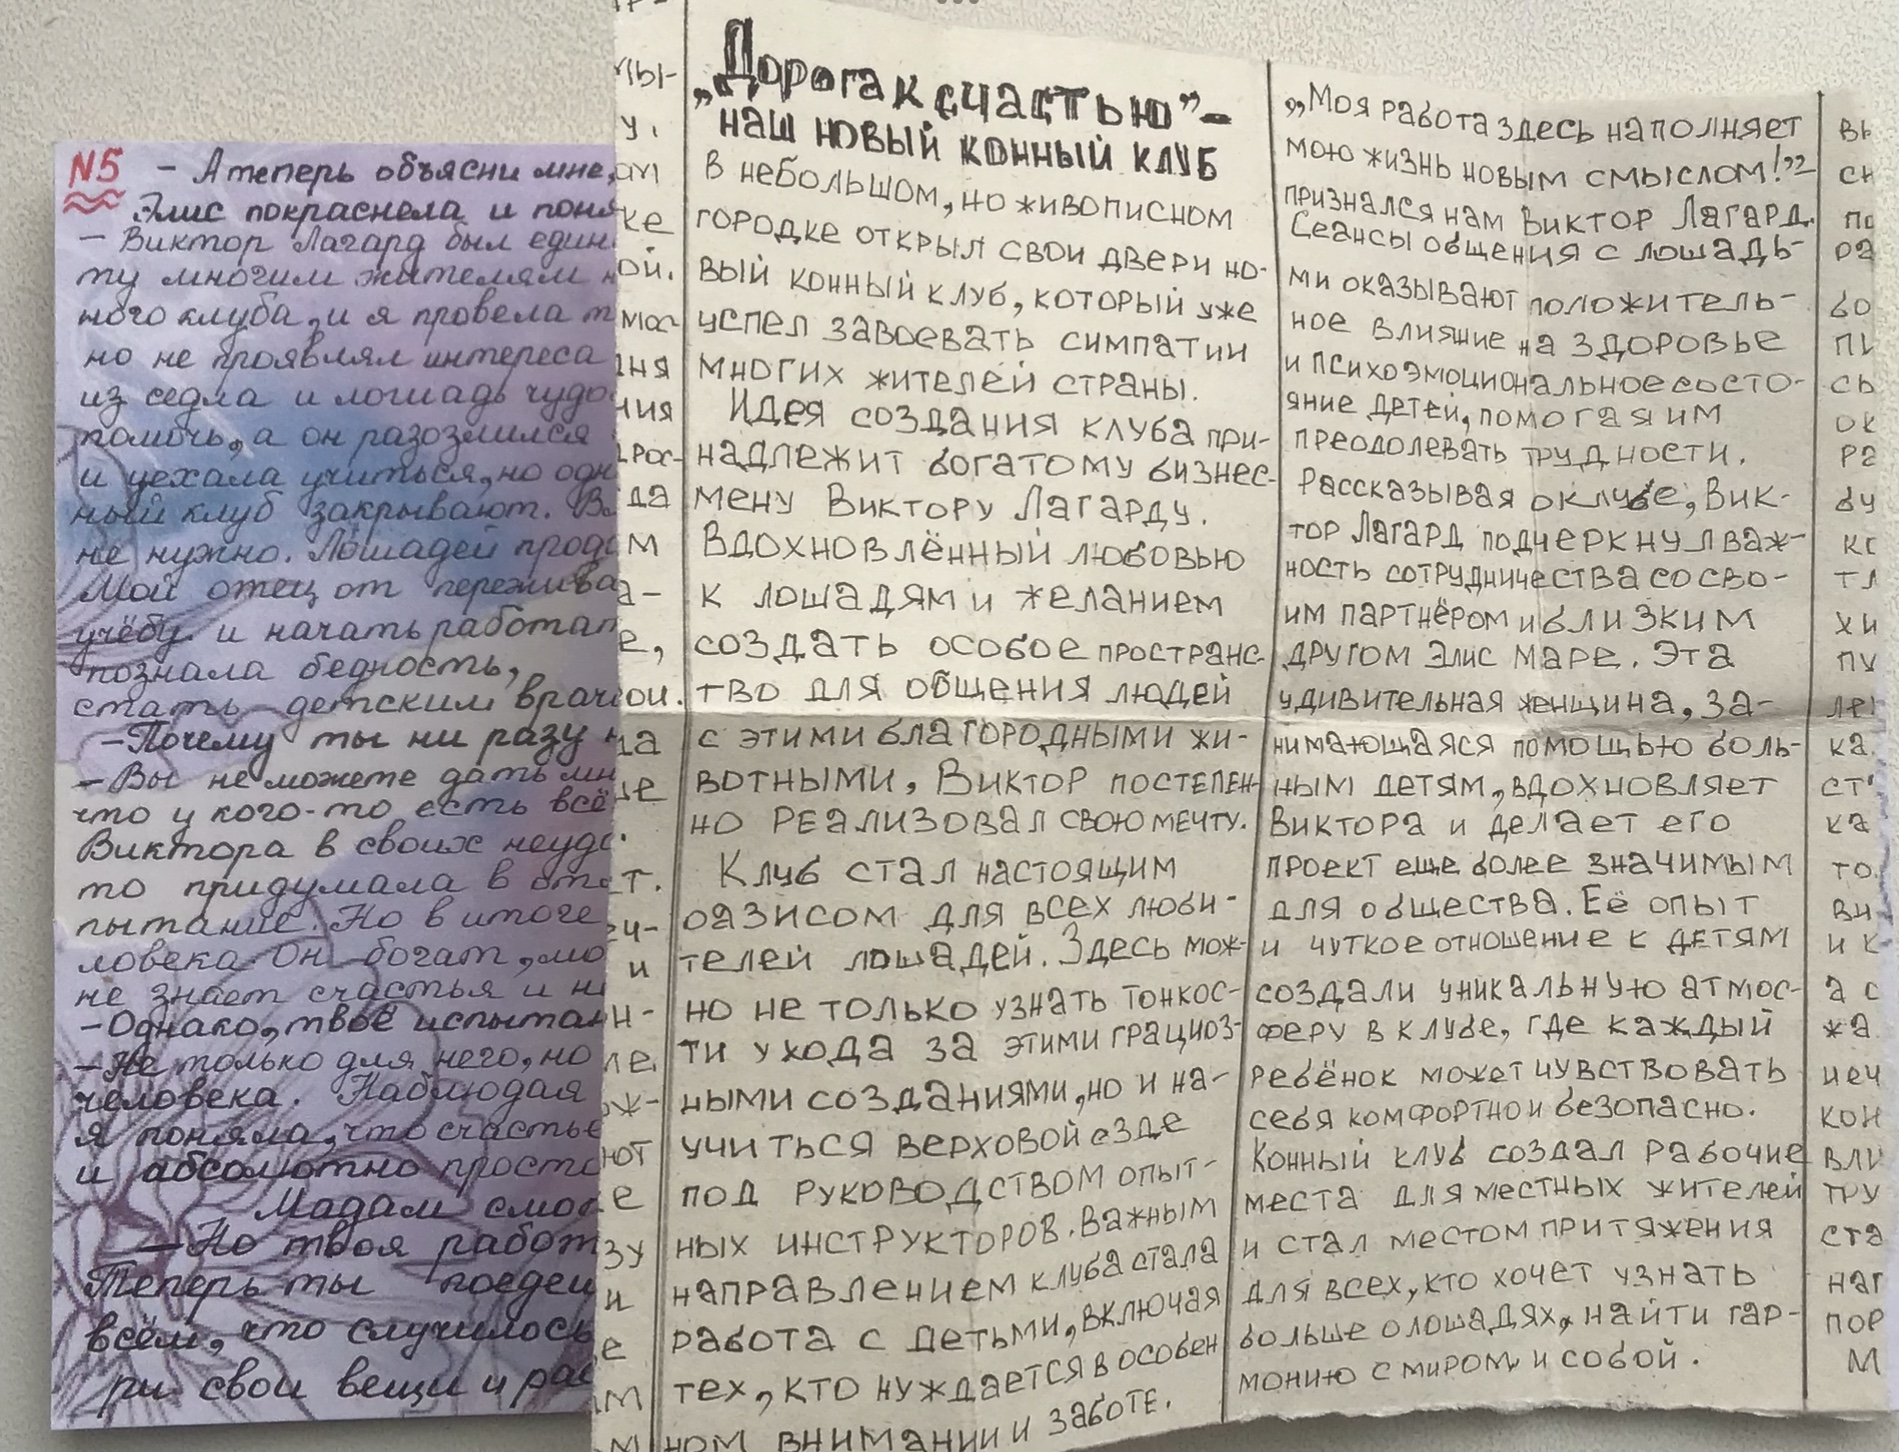 N5
– А теперь объясни мне,
Элис покраснела и поня
– Виктор Лагард был един
ту многим жителям н
ного клуба, и я провела т
но не проявлял интереса
из седла и лошадь чудо
помочь, а он разозлился
и уехала учиться, но одн
ный клуб закрывают. В
не нужно. Лошадей прода
Мой отец от пережива
учёбу и начать работат
познала бедность,
стать детским врач
–Почему ты ни разу н
–Вы не можете дать мн
что у кого-то есть всё
Виктора в своих неуда
то придумала в отт
пытание. Но в итоге
ловека Он богат, мо
не знает счастья и н
–Однако, твоё испытан
–Не только для него, но
человека. Наблюдая
я поняла, что счастье
и абсолютно просто
Мадам смо
–Но твоя работ
Теперь ты поедеш
всём, что случилось
ри свои вещи и рас
„Дорога к счастью” –
наш новый конный клуб
В небольшом, но живописном
городке открыл свои двери но-
вый конный клуб, который уже
успел завоевать симпатии
многих жителей страны.
Идея создания клуба при-
надлежит богатому бизнес-
мену Виктору Лагарду.
Вдохновлённый любовью
к лошадям и желанием
создать особое пространс-
тво для общения людей
с этими благородными жи-
вотными, Виктор постепен-
но реализовал свою мечту.
Клуб стал настоящим
оазисом для всех люби-
телей лошадей. Здесь мож-
но не только узнать тонкос-
ти ухода за этими грациоз-
ными созданиями, но и на-
учиться верховой езде
под руководством опыт-
ных инструкторов. Важным
направлением клуба стала
работа с детьми, включая
тех, кто нуждается в особен
ном внимании и заботе.
„Моя работа здесь наполняет
мою жизнь новым смыслом!”
признался нам Виктор Лагард.
Сеансы общения с лошадь-
ми оказывают положитель-
ное влияние на здоровье
и психоэмоциональное состо-
яние детей, помогая им
преодолевать трудности.
Рассказывая о клубе, Вик-
тор Лагард подчеркнул важ-
ность сотрудничества со сво-
им партнёром и близким
другом Элис Маре. Эта
удивительная женщина, за-
нимающаяся помощью боль-
ным детям, вдохновляет
Виктора и делает его
проект еще более значимым
для общества. Её опыт
и чуткое отношение к детям
создали уникальную атмос-
феру в клубе, где каждый
ребёнок может чувствовать
себя комфортно и безопасно.
Конный клуб создал рабочие
места для местных жителей
и стал местом притяжения
для всех, кто хочет узнать
больше о лошадях, найти гар-
монию с миром и собой.